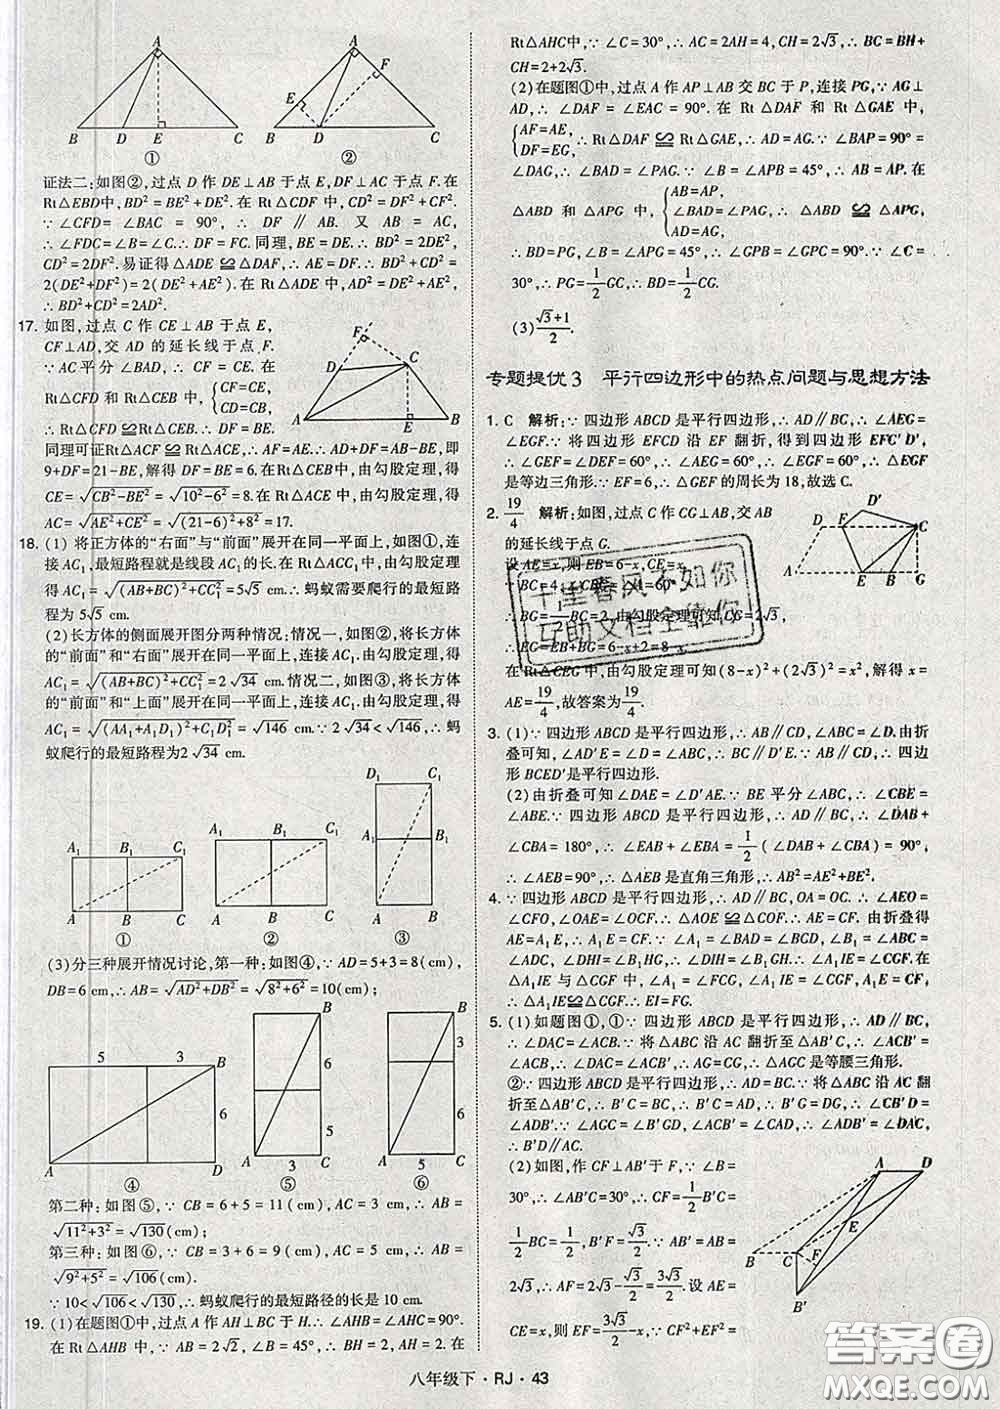 A
B D E C
①
A
E
F
B D C
②
证法二:如图②,过点 D 作 DE⊥AB 于点 E,DF⊥AC 于点 F. 在
Rt△EBD中,BD²=BE²+DE². 在 Rt△CDF 中,CD²=DF²+CF².
∵∠CFD=∠BAC=90°,∴DF∥AB. 又 AB=AC,
∴∠FDC=∠B=∠C.∴DF=FC. 同理,BE=DE.∴BD²=2DE²,
CD²=2DF². 易证得△ADE≌△DAF,∴AE=DF.∴BD²+CD²=
2(DE²+DF²)=2(DE²+AE²). 在 Rt△ADE 中,AD²=DE²+AE²,
∴BD²+CD²=2AD².
17. 如图,过点 C 作 CE⊥AB 于点 E,
CF⊥AD,交 AD 的延长线于点 F.
∵AC平分∠BAD,∴CF=CE. 在
Rt△CFD 和 Rt△CEB 中,{CF=CE,
CD=CB,
∴Rt△CFD≌Rt△CEB,∴DF=BE.
F
D
C
A E B
同理可证Rt△CAF≌Rt△CAE,∴AF=AE.∴AD+DF=AB-BE,即
9+DF=21-BE,解得 DF=BE=6. 在Rt△CEB中,由勾股定理,得
CE=√(CB²-BE²)=√(10²-6²)=8. 在Rt△ACE 中,由勾股定理,得
AC=√(AE²+CE²)=√((21-6)²+8²)=17.
18. (1) 将正方体的“右面”与“前面”展开在同一平面上,如图①,连
接 AC₁,最短路程就是线段 AC₁的长. 在Rt△ACC₁中,由勾股定
理,得 AC₁=√((AB+BC)²+CC₁²)=5√5 cm.∴蚂蚁需要爬行的最短路
程为5√5 cm.
(2)长方体的侧面展开图分两种情况:情况一,如图②,将长方体
的“前面”和“右面”展开在同一平面上,连接 AC₁. 由勾股定理,得
AC₁=√((AB+BC)²+CC₁²)=2√34 cm. 情况二,如图③,将长方体
的“前面”和“上面”展开在同一平面上,连接 AC₁. 由勾股定理,得
AC₁=√((AA₁+A₁D₁)²+C₁D₁²)=√146 cm.∵2√34<√146 cm,∴蚂
蚁爬行的最短路程为2√34 cm.
A₁ B₁ C₁
A B C
①
A₁ B₁ C₁
A B C
②
D₁ C₁
A₁ B₁
A B
③
(3)分三种展开情况讨论,第一种:如图④,∵AD=5+3=8(cm),
DB=6 cm,∴AB=√(AD²+DB²)=√(8²+6²)=10(cm);
5 3 B
6
A D
④
B
6
5
A 3 C
⑤
B
3
6
A 5 C
⑥
第二种:如图⑤,∵CB=6+5=11(cm),AC=3 cm,∴AB=
√(11²+3²)=√130(cm);
第三种:如图⑥,∵CB=3+6=9(cm),AC=5 cm,∴AB=
√(9²+5²)=√106(cm).
∵10<√106<√130,∴蚂蚁爬行的最短路径的长是 10 cm.
19. (1)在题图①中,过点 A 作 AH⊥BC 于 H.∴∠AHB=∠AHC=90°.
在 Rt△AHB 中,∵AB=2√2,∠B=45°,∴BH=2,AH=2. 在
Rt△AHC中,∵∠C=30°,∴AC=2AH=4,CH=2√3,∴BC=BH+
CH=2+2√3.
(2)在题图①中,过点 A 作 AP⊥AB 交 BC 于 P,连接 PG,∵AG⊥
AD,∴∠DAF=∠EAC=90°. 在 Rt△DAF 和 Rt△GAE 中,
{AF=AE,
DF=EG, ∴Rt△DAF≌Rt△GAE,∴AD=AG.∵∠BAP=90°=
∠DAG,∴∠BAD=∠PAG.∵∠B=∠APB=45°,∴AB=AP. 在
△ABD 和△APG 中,{AB=AP,
∠BAD=∠PAG,∴△ABD≌△APG,
AD=AG,
∴BD=PG,∠B=∠APG=45°,∴∠GPB=∠GPC=90°.∵∠C=
30°,∴PG=1/2GC,∴BD=1/2CG.
(3)(√3+1)/2.
专题提优3 平行四边形中的热点问题与思想方法
1. C 解析:∵四边形 ABCD 是平行四边形,∴AD∥BC,∴∠AEG=
∠EGF.∵将四边形 EFCD 沿 EF 翻折,得到四边形 EFC′D′,
∴∠GEF=∠DEF=60°,∴∠AEG=60°,∴∠EGF=60°,∴△EGF
是等边三角形.∵EF=6,∴△GEF 的周长为 18,故选 C.
2. 19/4 解析:如图,过点 C 作 CG⊥AB,交AB
的延长线于点 G.
设 AE=x,则 EB=6-x,CE=x
D′
D F C
A E B G
∴BG=1/2BC=2. 由勾股定理可知 CG=2√3,
∴EG=EB+BG=6-x+2=8-x.
在 Rt△CEG 中,由勾股定理可知 (8-x)²+(2√3)²=x²,解得 x=
19/4,∴AE=19/4,故答案为19/4.
3. (1)∵四边形 ABCD 是平行四边形,∴AB∥CD,∠ABC=∠D. 由折
叠可知,∠AD′E=∠D=∠ABC,∴BC∥D′E.∵AB∥CD,∴四边
形 BCED′是平行四边形.
(2)由折叠可知∠DAE=∠D′AE.∵BE 平分∠ABC,∴∠CBE=
∠ABE.∵四边形 ABCD 是平行四边形,∴AD∥BC,∴∠DAB+
∠CBA=180°,∴∠EAB+∠EBA=1/2(∠DAB+∠CBA)=90°,
∴∠AEB=90°,∴△AEB 是直角三角形,∴AB²=AE²+BE².
4. ∵四边形 ABCD 是平行四边形,∴AD∥BC,OA=OC.∴∠AEO=
∠CFO,∠OAE=∠OCF.∴△AOE≌△COF.∴AE=CF. 由折叠得
AE=A₁E,∴A₁E=CF.∵∠A₁=∠BAD=∠BCD,∠B₁=∠ABC=
∠ADC,∠DHI=∠B₁HG,∴∠DIH=∠B₁GH=∠A₁IE=∠CGF. 在
△A₁IE 与△CGF 中,∠A₁=∠FCG,∠A₁IE=∠CGF,A₁E=CF,
∴△A₁IE≌△CGF,∴EI=FG.
5. (1)如题图①,①∵四边形 ABCD 是平行四边形,∴AD∥BC,
∴∠DAC=∠ACB.∵将△ABC 沿 AC 翻折至△AB′C,∴∠ACB′=
∠ACB,∴∠DAC=∠ACB′,∴AG=CG,∴△AGC 是等腰三角形.
②∵四边形 ABCD 是平行四边形,∴AD=BC.∵将△ABC 沿 AC 翻
折至△AB′C,∴B′C=BC,∴AD=B′C,∴B′G=DG,∴∠CB′D=
∠ADB′.∵∠AGC=∠B′GD,∠ACB′=∠CAD,∴∠ADB′=∠DAC,
∴B′D∥AC.
(2)如图,作 CF⊥AB′于 F,∵∠B=
30°,∴∠AB′C=30°,∴CF=1/2B′C=
1/2BC=√3/2,B′F=3/2.∵AB′=AB=
2√3,∴AF=2√3-√3/2=3√3/2. 设 AE=
CE=x,则 EF=3√3/2-x,∵CF²+EF²=
A D
E
B C F
B′
千里春风不如你
互助文档全靠你
八年级下·RJ·43
答案圈
MXQE.COM